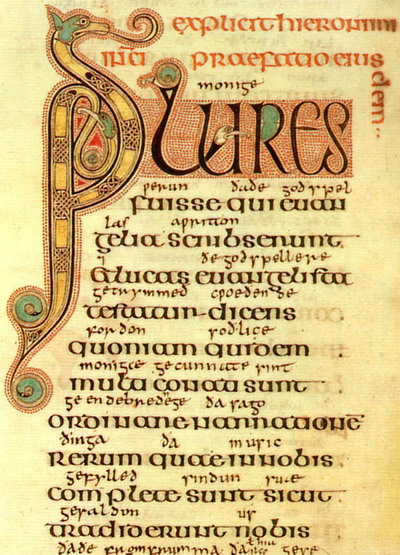 explicit hieronimi
inci praefatio eius
dem
monige
PLURES
ƿerun ðaðe godspel
fuisse qui euan
las aƿritton
gelia scribserunt.
⁊ ðe godspellere
& lucas euangelista
getrymmed cƿoeðende
testatur dicens
forðon soðlice
quoniam quidem .
monigie gecunnate sint
multi conati sunt .
ða saga
ordinare narrationē
ðinga ða in usic
rerum quae in nobis .
gefylled sindun suæ
complete sunt sicut
gesaldon us
tradiderunt nobis
ðaðe